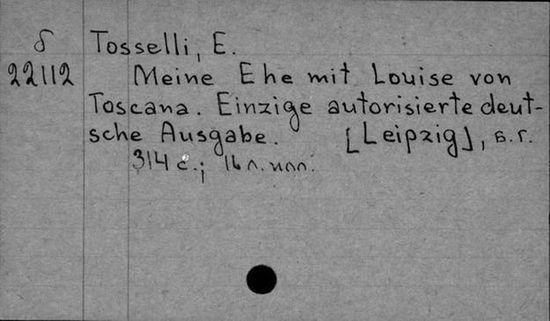 δ Tosselli, E.
22112 Meine Ehe mit Louise von
Toscana. Einzige autorisierte deut-
sche Ausgabe. [Leipzig], s.r.
314 с.; 16 л. илл.